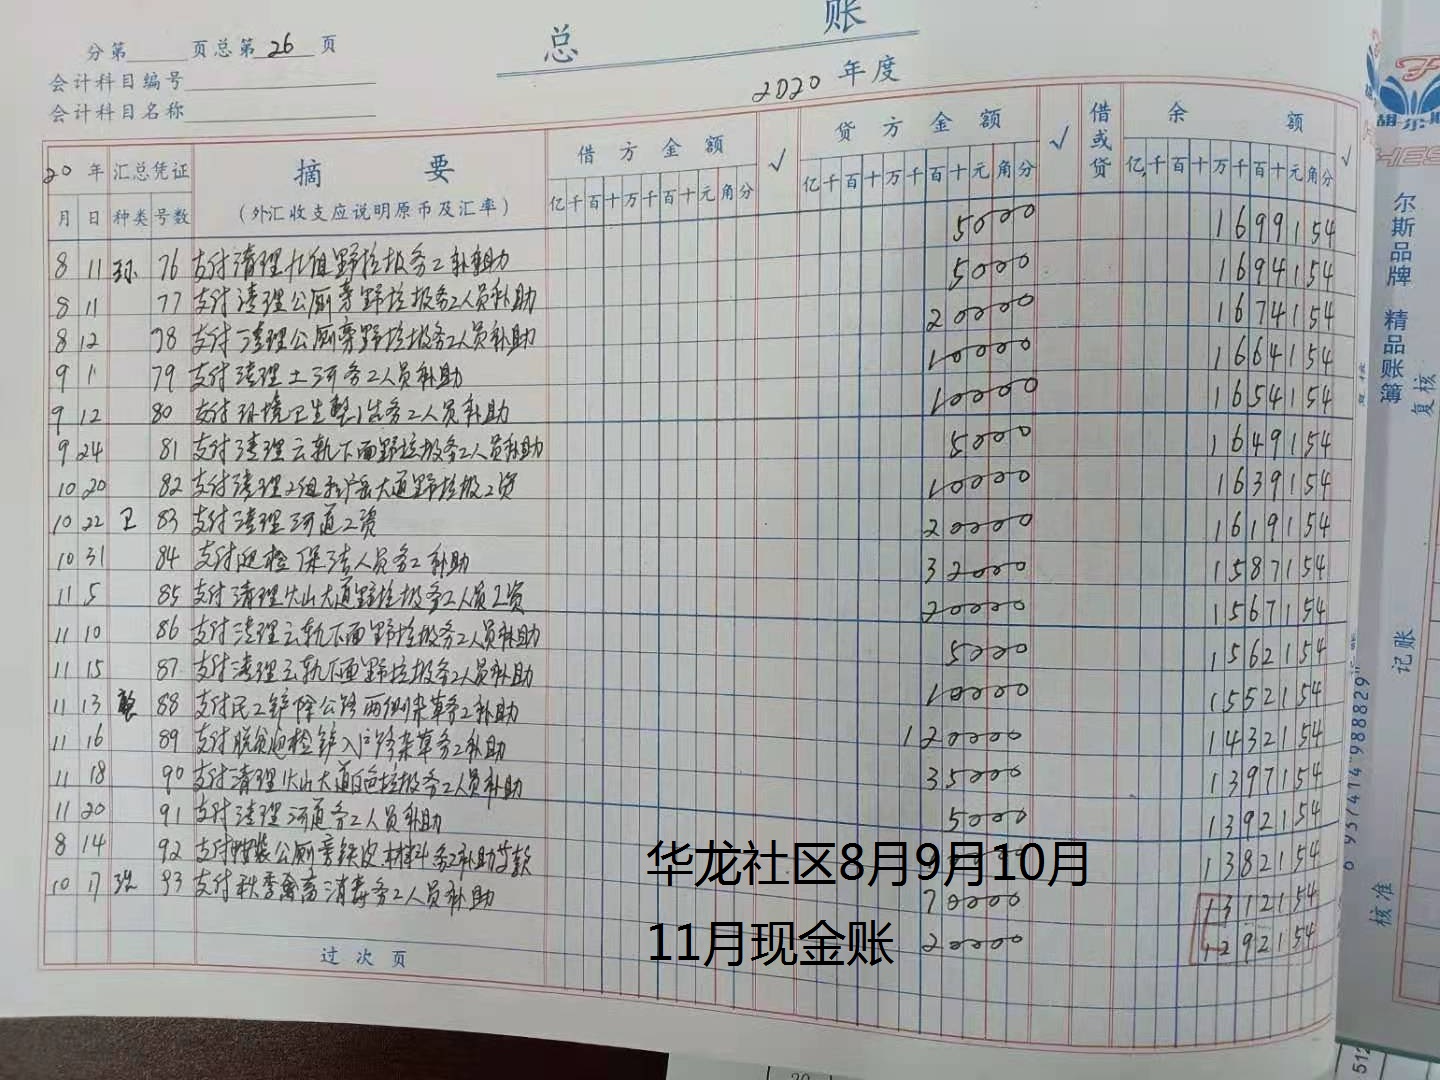 总 账
分第 页总第 26 页
会计科目编号
会计科目名称
2020 年度
20 年 汇总凭证 摘 要 借方金额 √ 贷方金额 √ 借或贷 余 额 √
月 日 种类 号数 (外汇收支应说明原币及汇率) 亿千百十万千百十元角分 亿千百十万千百十元角分 亿千百十万千百十元角分
5000 1699154
8 11 环 76 支付清理九组野垃圾务工补助 5000 1694154
8 11 77 支付清理公厕旁野垃圾务工人员补助 20000 1674154
8 12 78 支付清理公厕旁野垃圾务工人员补助 10000 1664154
9 1 79 支付清理土河务工人员补助 10000 1654154
9 12 80 支付环境卫生整治务工人员补助 5000 1649154
9 24 81 支付清理云轨下面野垃圾务工人员补助 10000 1639154
10 20 82 支付清理2组 大道野垃圾工资 20000 1619154
10 22 卫 83 支付清理河道工资 32000 1587154
10 31 84 支付迎检保洁人员务工补助 20000 1567154
11 5 85 支付清理火山大道野垃圾务工人员工资 5000 1562154
11 10 86 支付清理云轨下面野垃圾务工人员补助 10000 1552154
11 15 87 支付清理云轨下面野垃圾务工人员补助 120000 1432154
11 13 88 支付民工铲除公路两侧杂草务工补助 35000 1397154
11 16 89 支付脱贫迎检铲入户路杂草务工补助 5000 1392154
11 18 90 支付清理火山大道白色垃圾务工人员补助 1382154
11 20 91 支付清理河道务工人员补助 70000 1312154
8 14 92 支付安装公厕旁铁皮材料务工补助等款 20000 1292154
10 17 93 支付秋季禽畜消毒务工人员补助
过次页
华龙社区8月9月10月
11月现金账
胡尔斯
尔斯品牌 精品账簿
6 937414 988829
复核
记账
核准
512
20